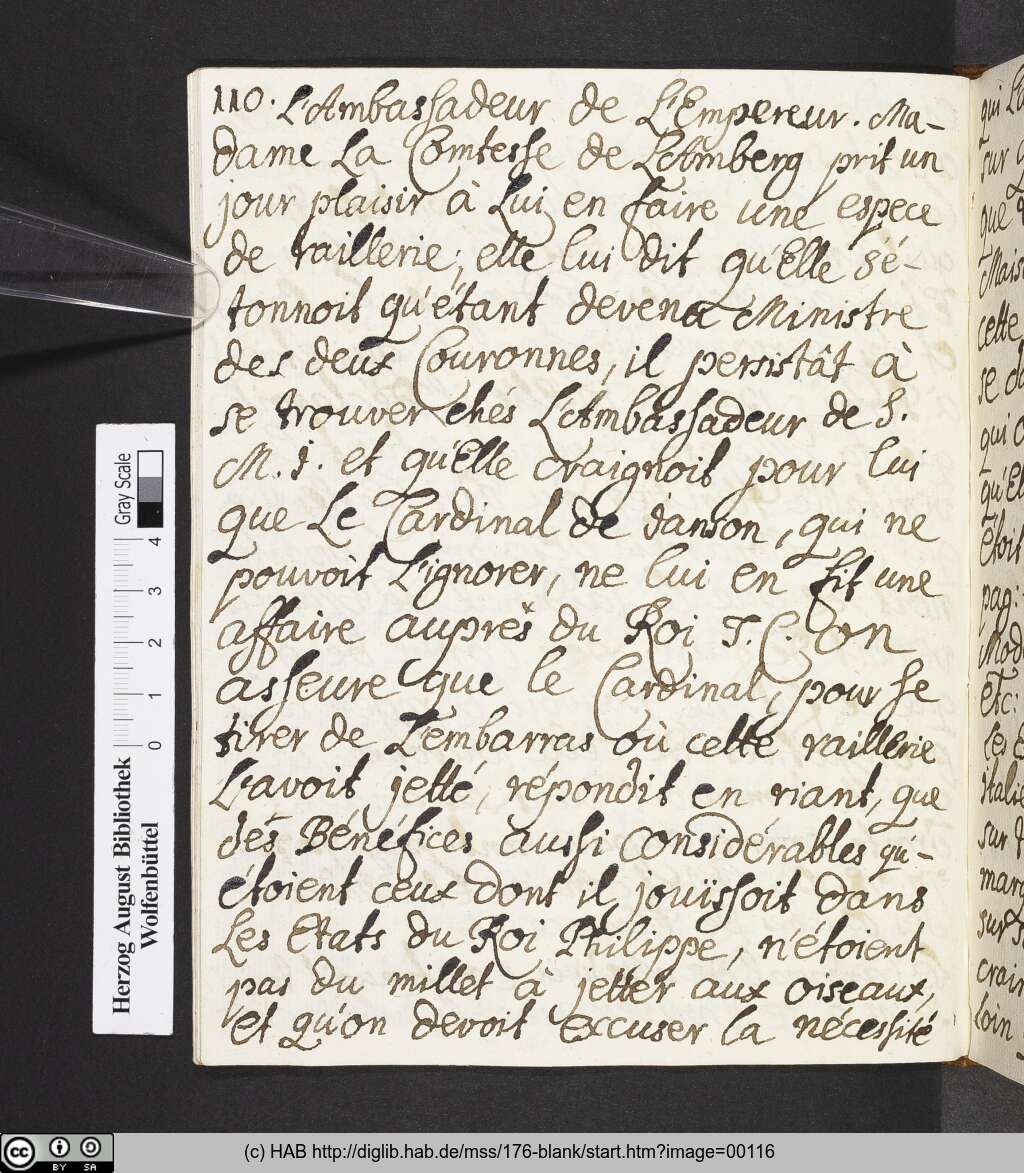 110. L'Ambassadeur de L'Empereur. Ma-
dame La Comtesse de LAmberg prit un
jour plaisir à Lui en faire une espece
de raillerie; elle lui dit qu'Elle s'é-
tonnoit qu'étant devenu Ministre
des deux Couronnes, il persistât à
se trouver chés L'Ambassadeur de S.
M. I. et qu'Elle craignoit pour lui
que Le Cardinal de Janson, qui ne
pouvoit L'ignorer, ne lui en fit une
affaire auprës du Roi T. C. On
asseure que le Cardinal, pour se
tirer de L'embarras où cette raillerie
L'avoit jetté, répondit en riant, que
dés Bénéfices aussi considérables qu'-
étoient ceux dont il jouïssoit dans
Les Etats du Roi Philippe, n'étoient
pas du millet à jetter aux oiseaux,
et qu'on devoit excuser la nécessité
qui
sur
que
Mais
cette
se
qui
qu'El
étoit
pag:
Mod
etc:
Les
italie
sur
marq
sur
crain
loin
Gray Scale
0 1 2 3 4
Herzog August Bibliothek
Wolfenbüttel
cc BY SA
(c) HAB http://diglib.hab.de/mss/176-blank/start.htm?image=00116